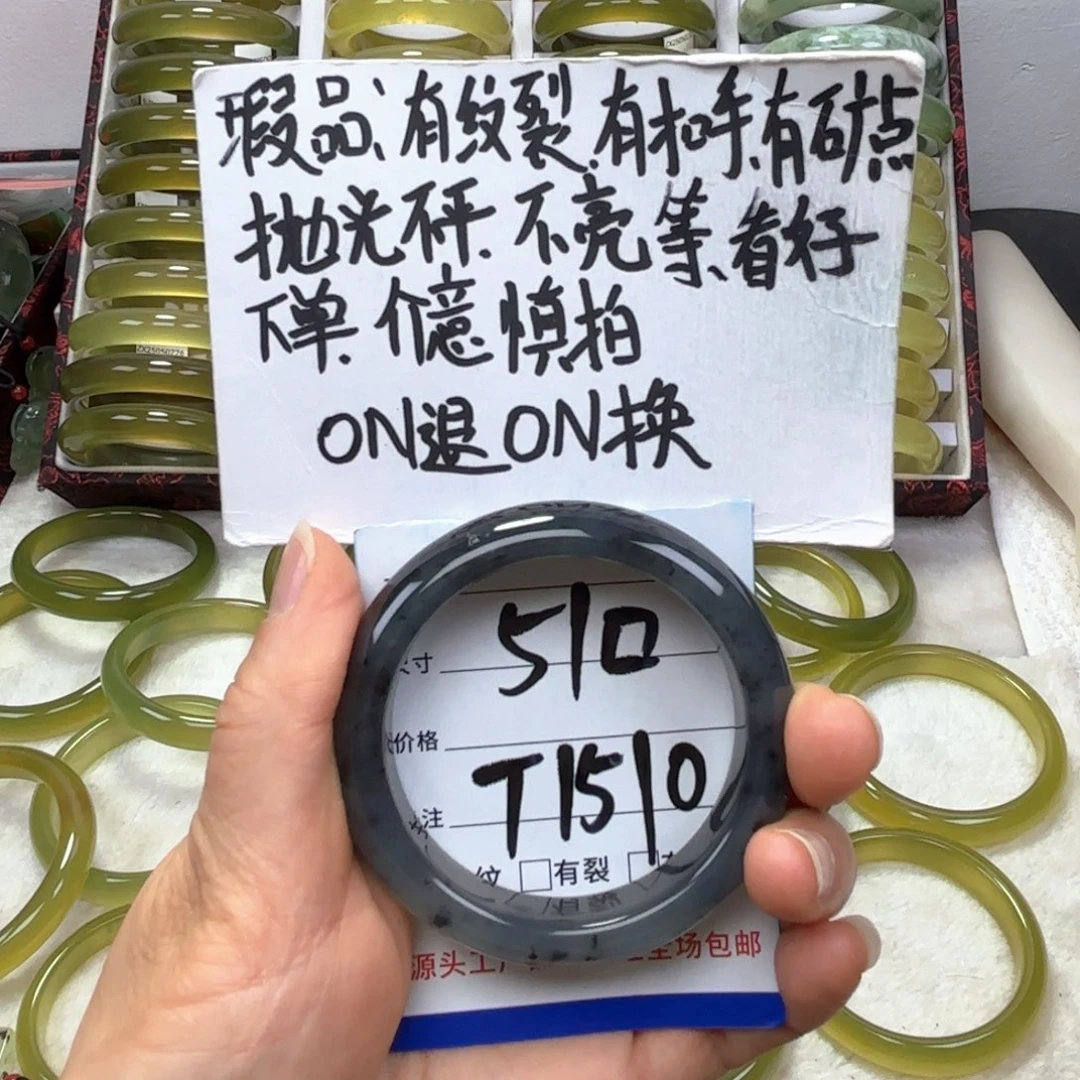 瑕品、有纹裂.有扣手.有矿点
抛光砰.不亮等、看好
下单.介意慎拍
ON退ON换
寸 51口
价格
T1510
注
纹 □有裂 □
源头工厂 全场包邮